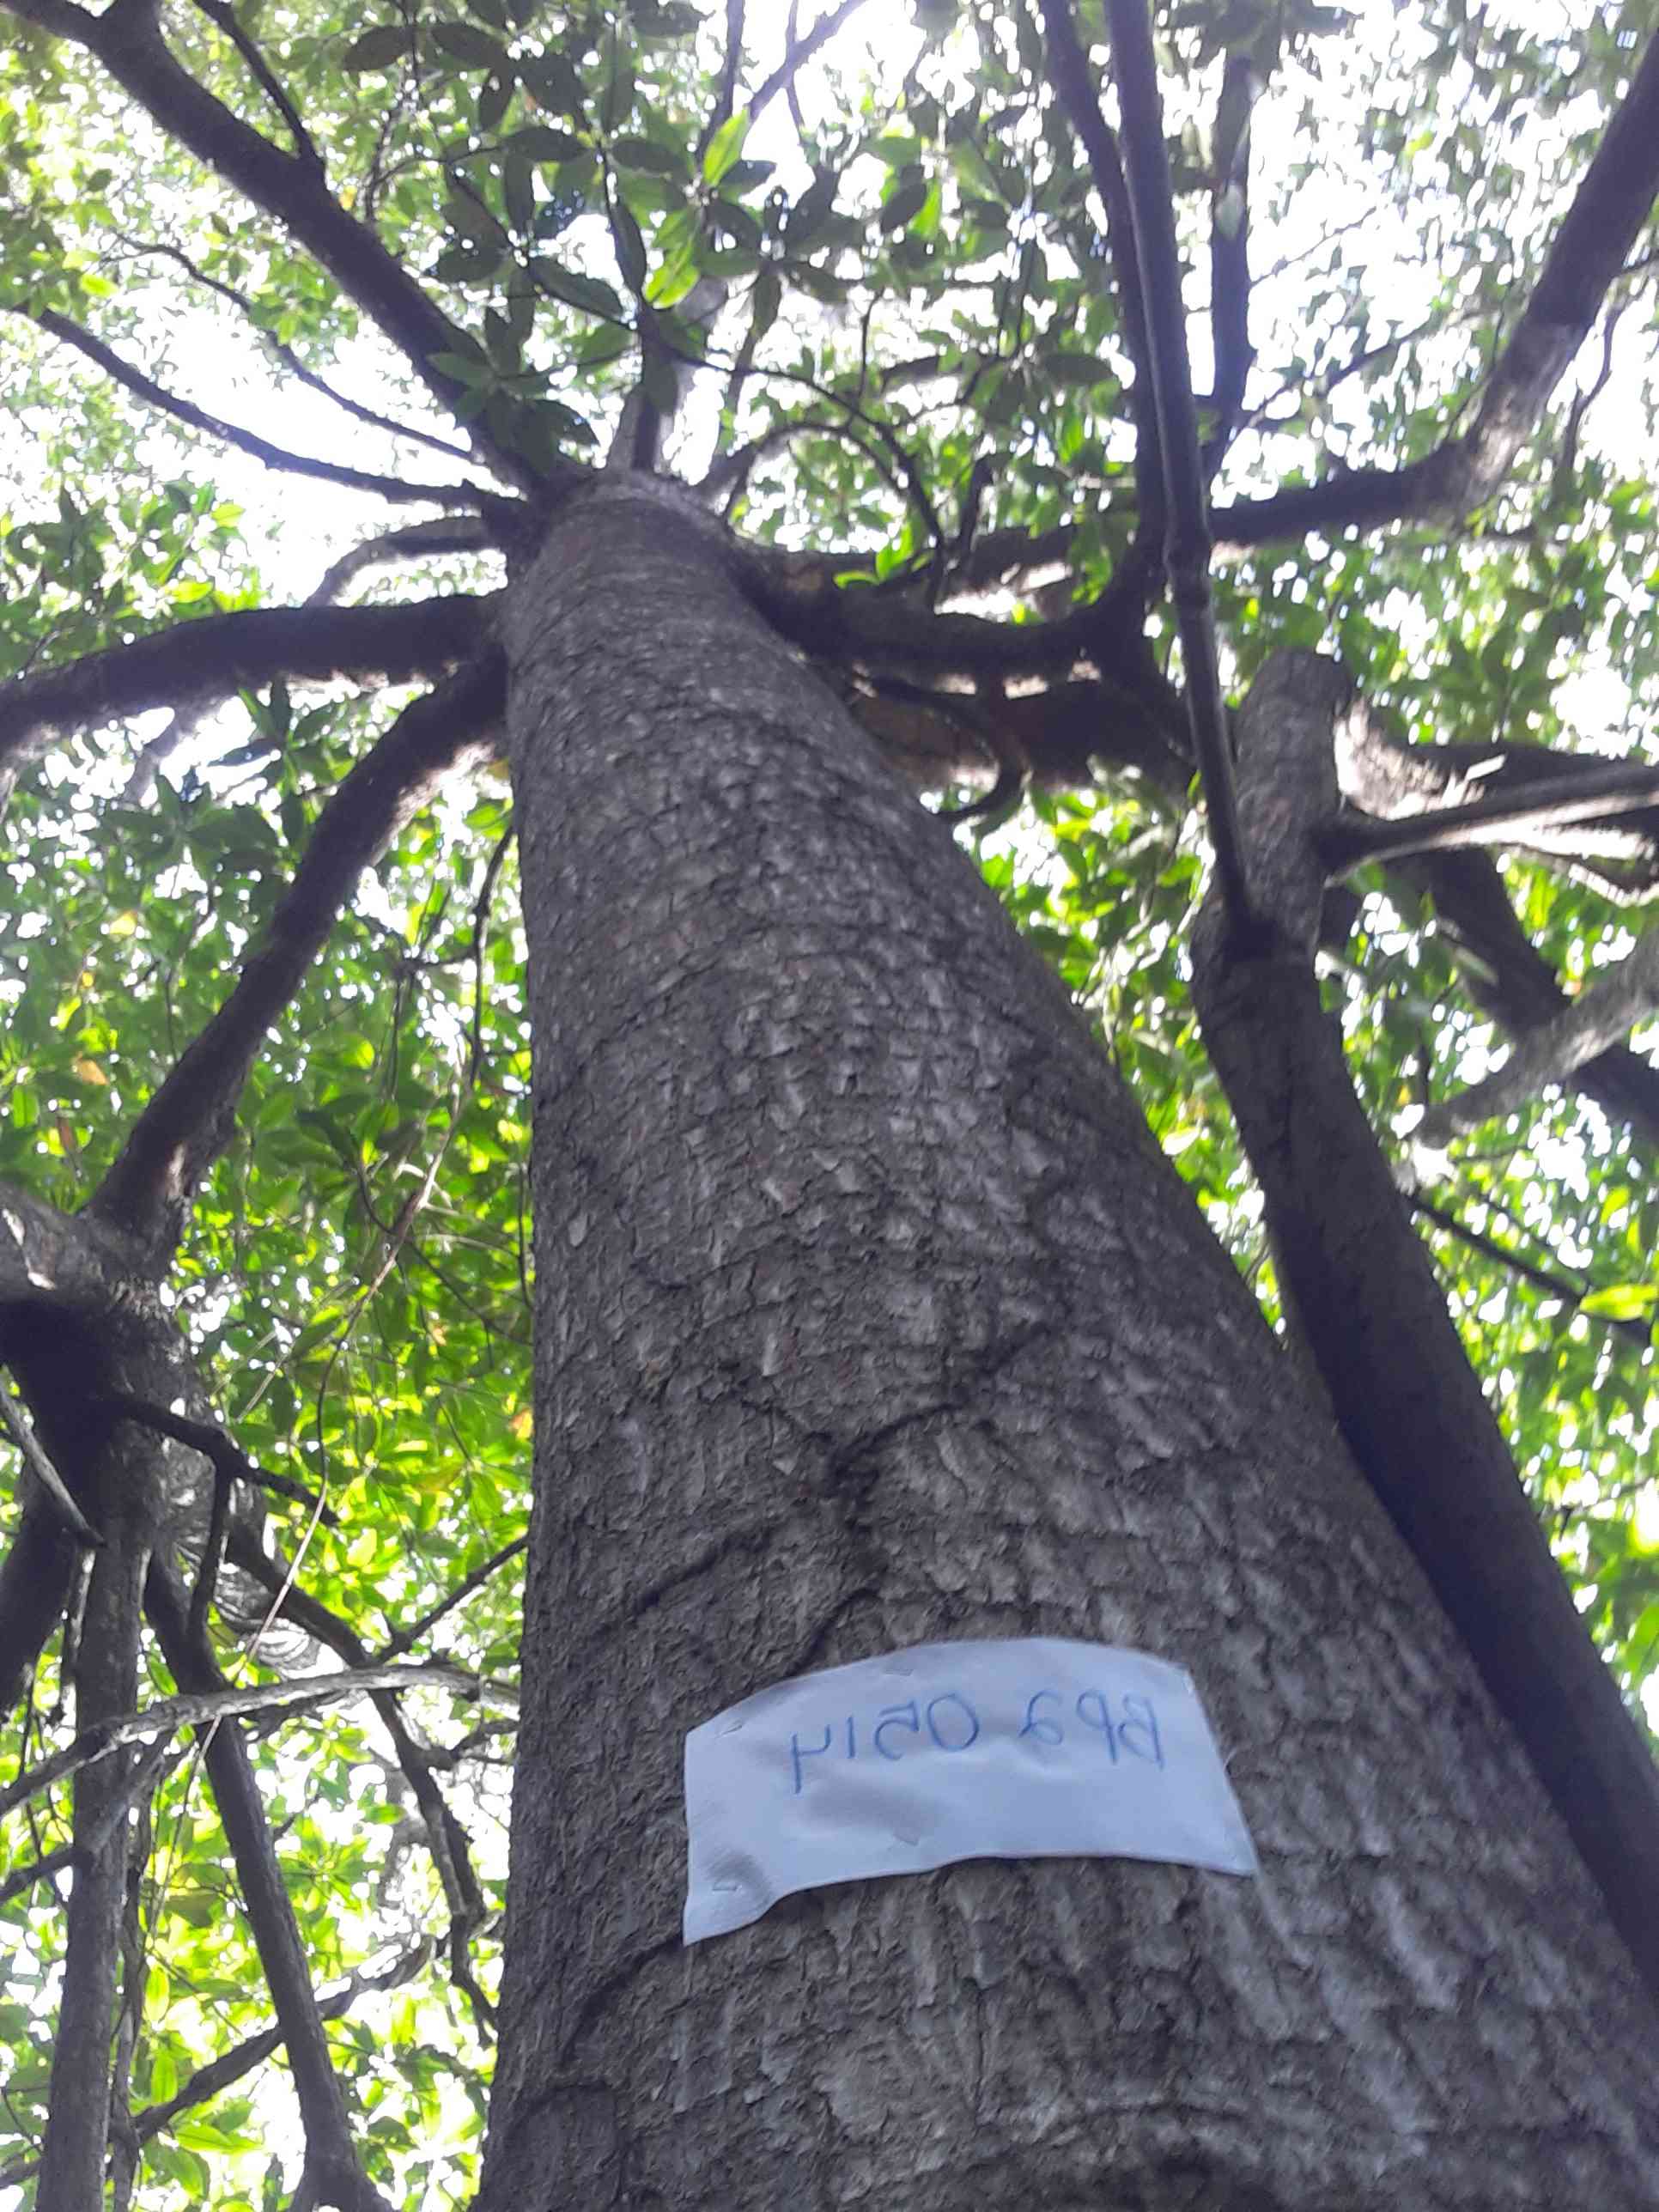 BP2 0514